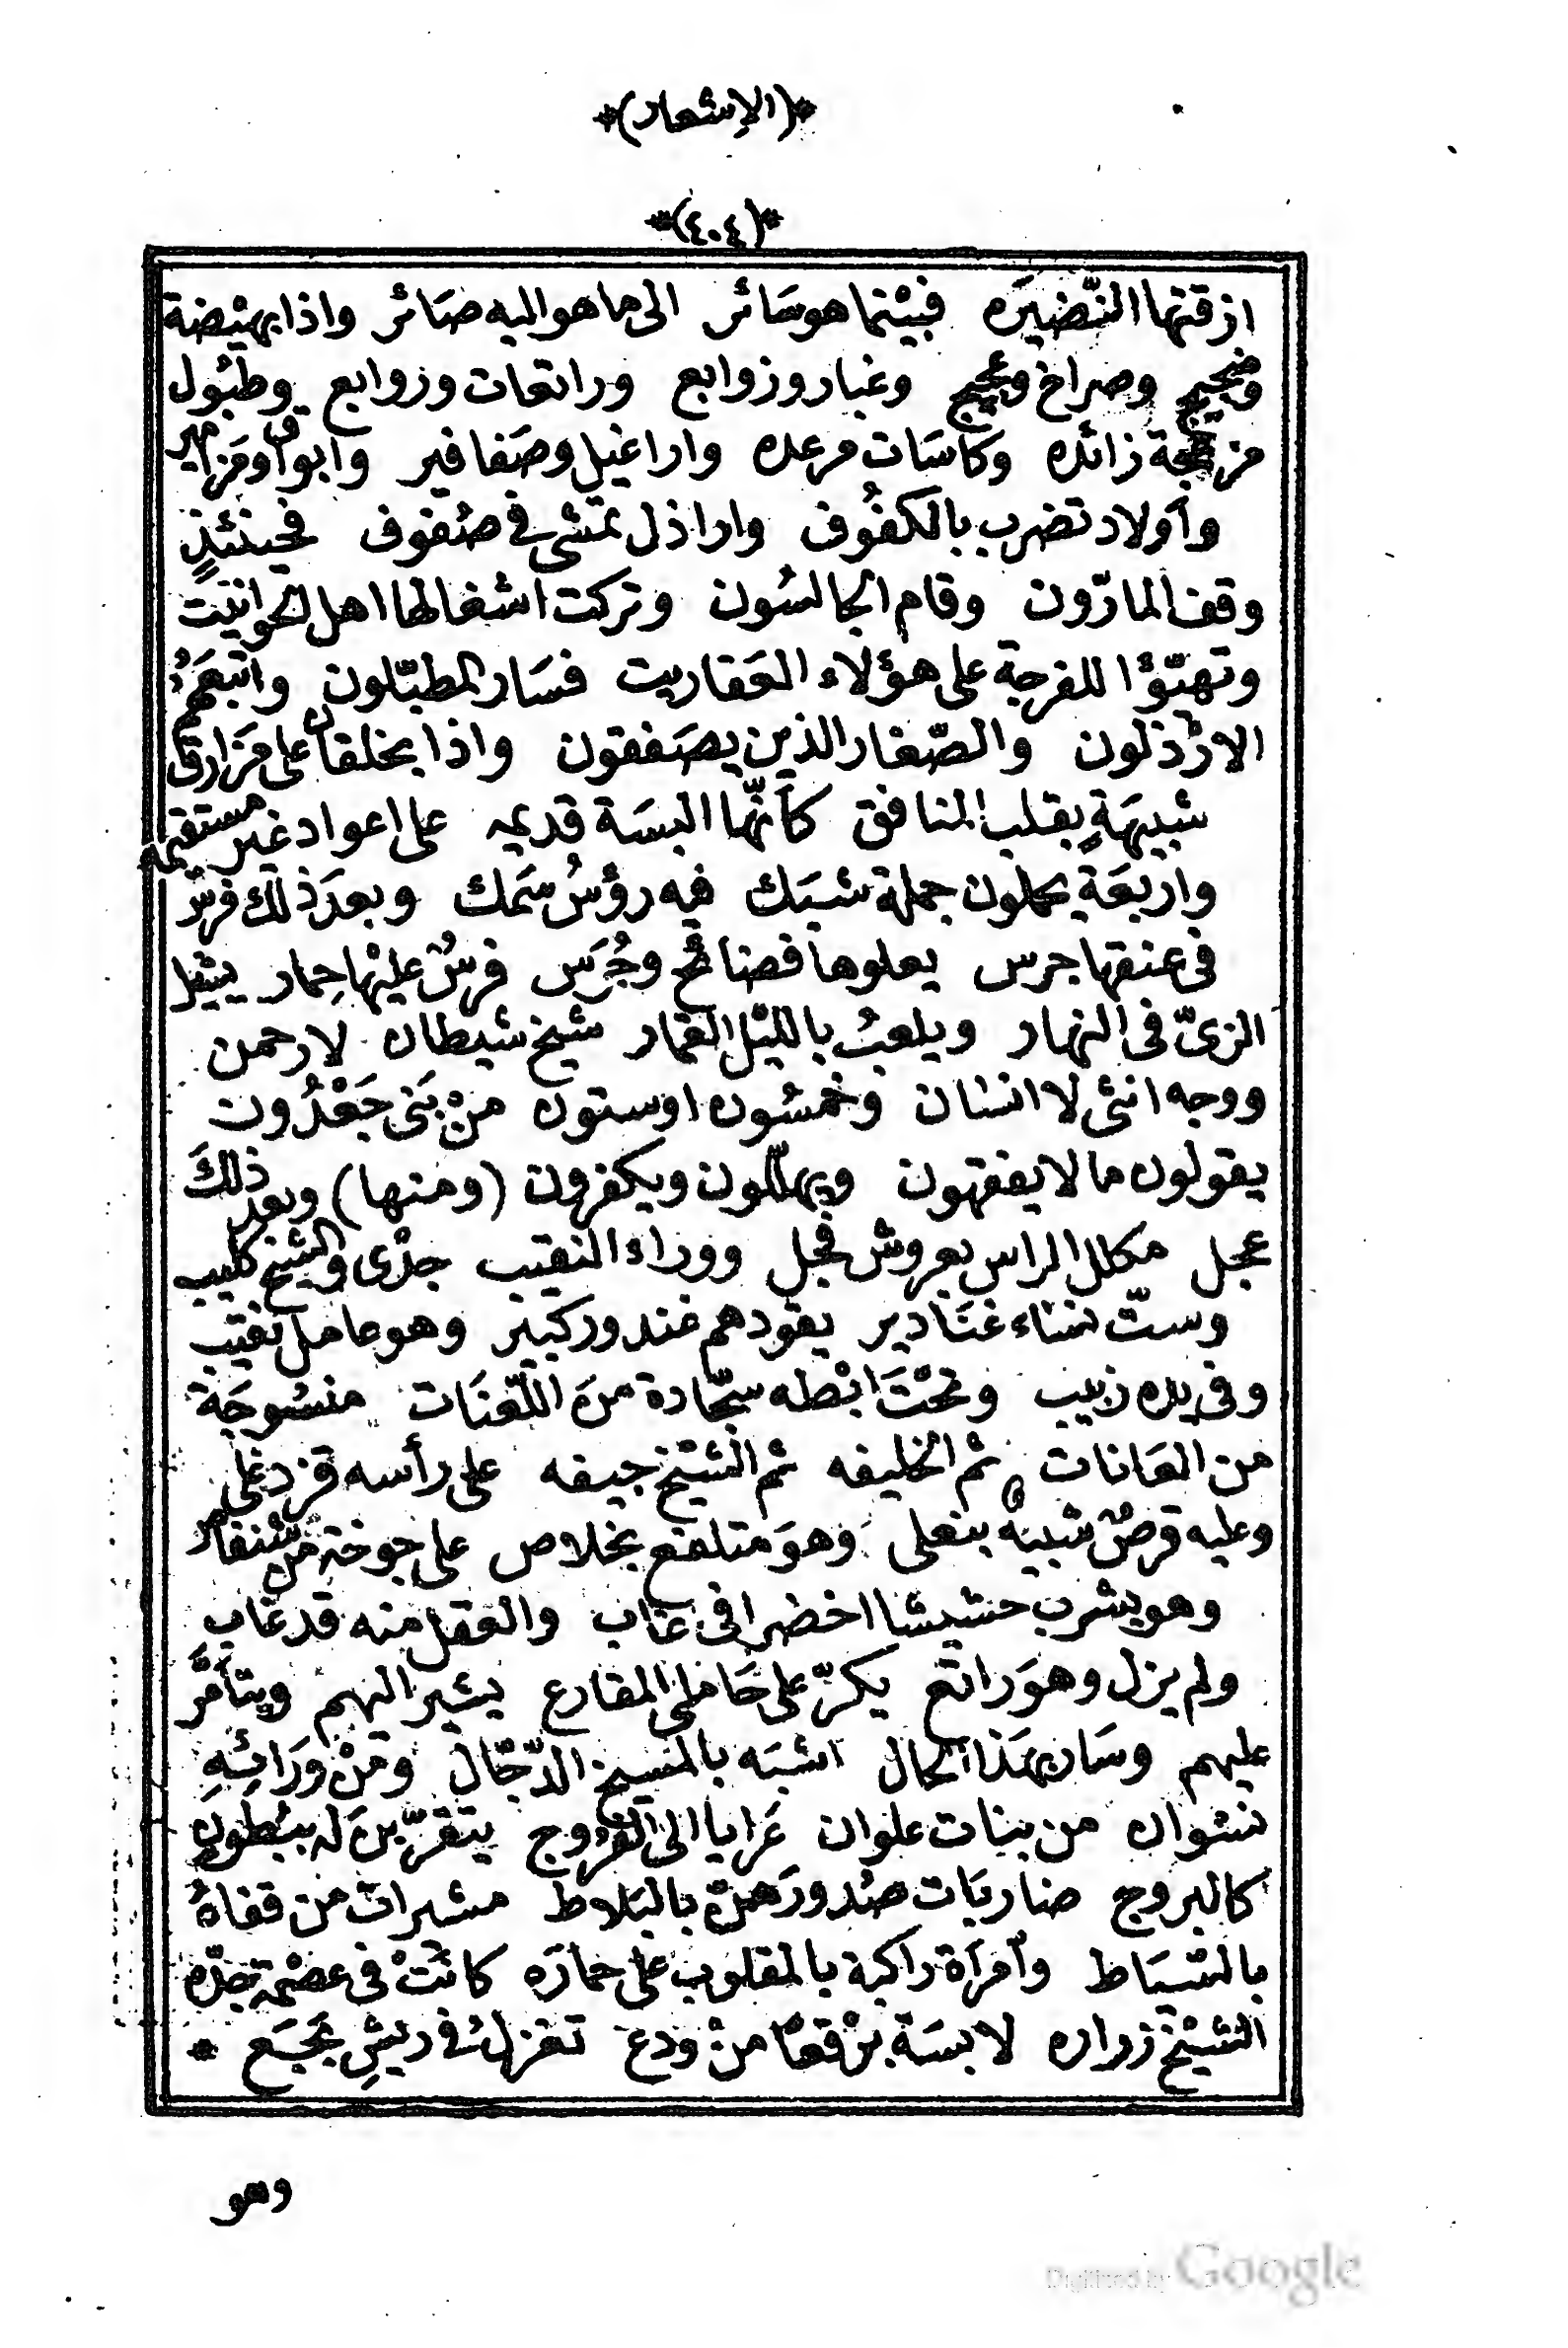 *(الإشعار)*
*(٤٠٤)*
ازقتها النّضيَره فبيْنما هو سَائر الى ما هو اليه صَائر واذا بهيْضة
وضجيج وصراخ وعجيج وغبار وزوابع وراتعات وزوابع وطبُول
مزعجة زائده وكاسَات مرعده واراغيل وصَفافير وابواق ومَزامير
وأولاد تضرب بالكفُوف واراذل تمشى فى صُفوف فحينئذٍ
وقف المارّون وقام الجالسُون وتركت اشغالها اهل الحوانيَت
وتهيّؤا للفرجة على هؤلاء العَفاريت فسَار المطبّلون واتبعَهمُ
الارْذلون والصّغار الذين يصَفقون واذا بخلقان على مَزارق
شبيهَةٍ بقلب المنافق كأنّها البسَة قديمه على اعواد غير مستقيمه
واربعَةٍ يحملون جملة شبَك فيه رؤسُ سَمك وبعدَ ذلك فرسٌ
فى عنقها جرس يعلوها فضائح وجُرَس فرسٌ عليْها حِمار يثيل
الزىّ فى النهار ويلعبُ بالليْل القمار شيخ شيطان لا رحمن
ووجه انثى لا انسَان وخمسُون او ستون منْ بَنى جَعْدُون
يقولون ما لا يفقهون ويهلّلون ويكفرون (ومنها) وبعد ذلكَ
عجل مكلل الراس بعروش فجل ووراء النقيب جدْى والشيخ كليب
وستّ نساء غنَادير يقودهم غندور كبير وهو حامل نقيب
وفى يده زبيب وتحْتَ ابْطه سجّادة منَ اللّعنَات منسُوجَة
من العَانات ثم الخليفه ثم الشيْخ جيفه على رأسه قرد غلى
وعليه قرصٌ شبيهٌ بنعلى وهوَ متلفع بخلاص على جوخةٍ من شنفاص
وهو يشرب حشيشا اخضرا فى غاب والعقل منه قد غاب
ولم يزل وهوَ راتع يكرّ على حَاملى المقارع يشير اليهم ويتأمَّر
عليهم وسَار بهَذا الحال اشبَه بالمسيخ الدّجّال ومنْ ورَائِهِ
نسْوان من بنات علوان عَرايا الى الفرُوج يتقرّبنَ لَه ببُطونٍ
كالبروج ضاربَات صُدورَهنّ بالبَلاط مشهرات من قفاهُ
بالسّيَاط وأمرَأة راكبة بالمقلوب على حمارَه كانتْ فى عصْمة جدّه
الشيْخ زواره لابسَة برْقعًا منْ ودع تغزلُ فى ريشِ بجَع *
وهو
Digitized by Google